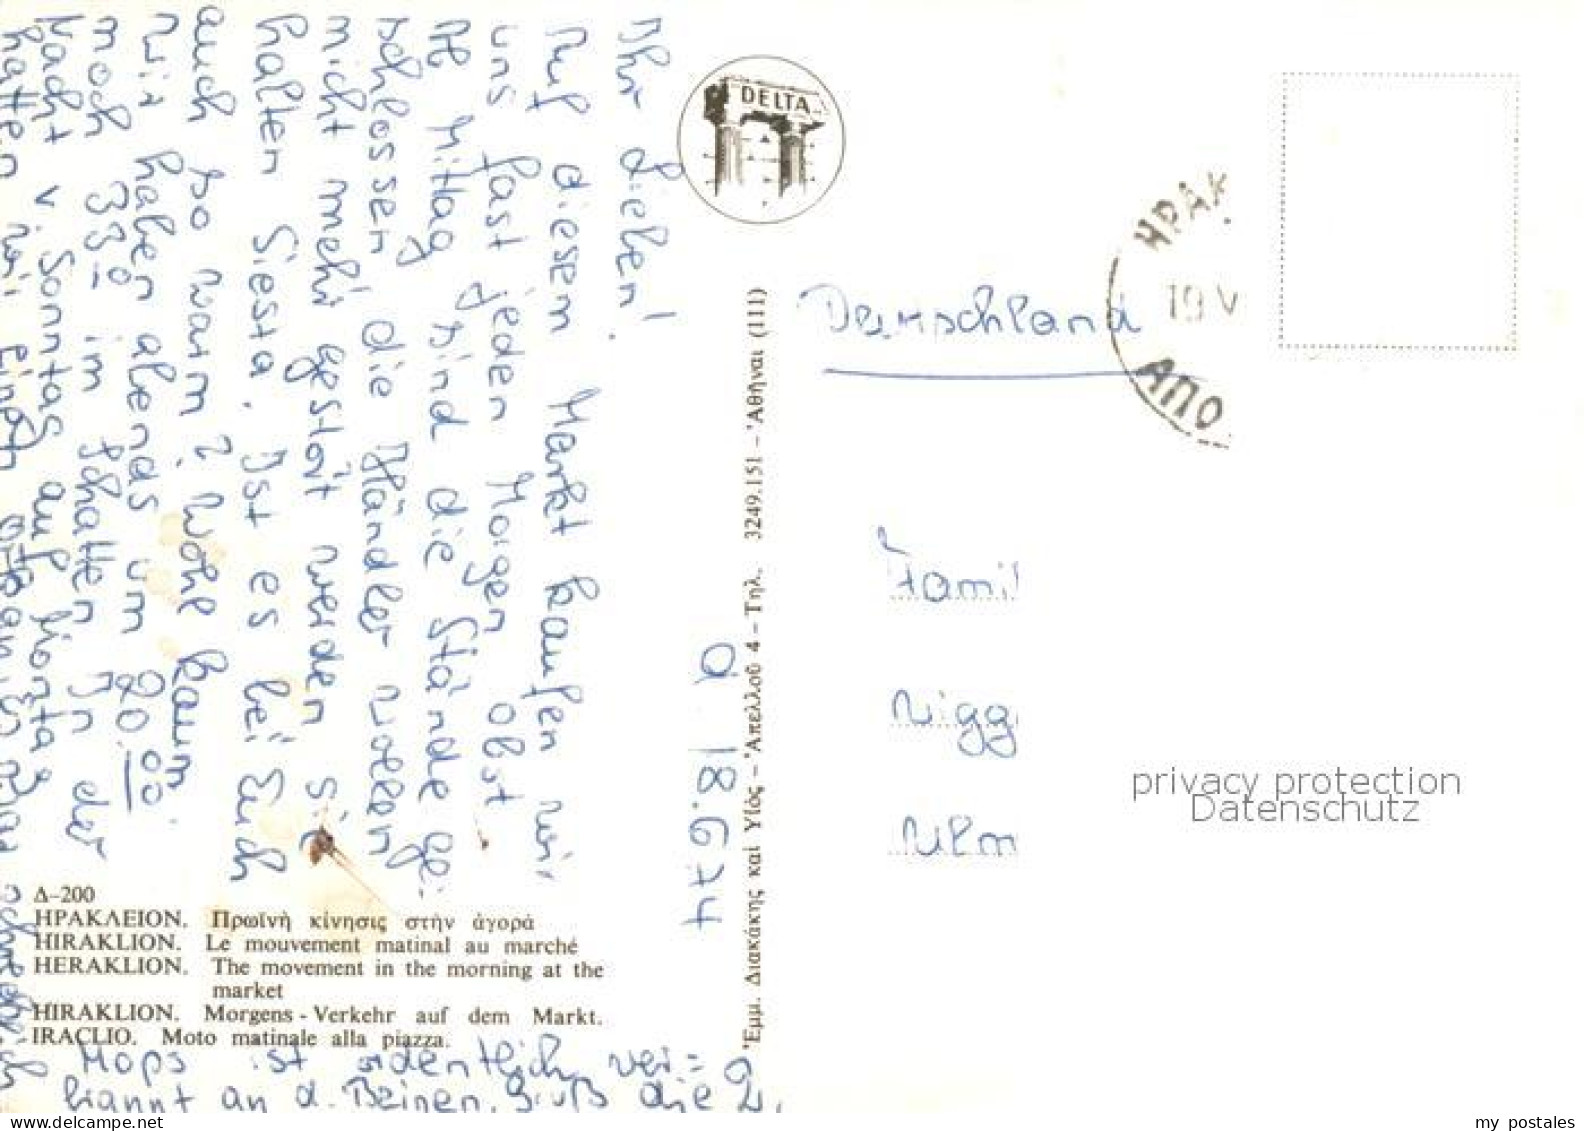 Ihr Lieben!
Auf diesem Markt kaufen wir
uns fast jeden Morgen Obst.
Ab Mittag sind die Stände ge-
schlossen die Händler wollen
nicht mehr gestört werden sie
halten Siesta. Ist es bei Euch
auch so warm? Wohl kaum.
Wir haben abends um 20.00
noch 33° im Schatten In der
Nacht v. Sonntag auf Montag
hatten wir einen
Mops ist ordentlich ver=
brannt an d. Beinen. Gruß die 2.
d 18.6 74
DELTA
Δ-200
ΗΡΑΚΛΕΙΟΝ. Πρωϊνὴ κίνησις στὴν ἀγορά
HIRAKLION. Le mouvement matinal au marché
HERAKLION. The movement in the morning at the
market
HIRAKLION. Morgens - Verkehr auf dem Markt.
IRACLIO. Moto matinale alla piazza.
Ἐμμ. Διακάκης καὶ Υἱός – Ἀπελλοῦ 4 – Τηλ. 3249.151 – Ἀθῆναι (111)
ΗΡΑΚ
19 V
ΑΠΟ
Deutschland
Famil
Nigg
Ulm
privacy protection
Datenschutz
www.delcampe.net
my postales